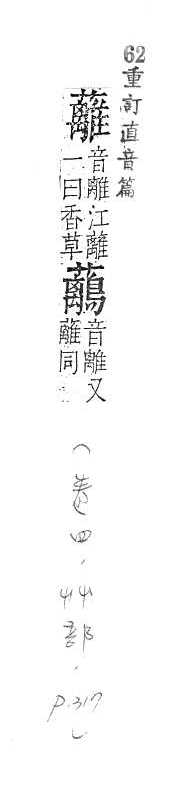 62重訂直音篇
蘺
音離江蘺
一曰香草
音離又
蘺同
（卷四，艸部，P.317）